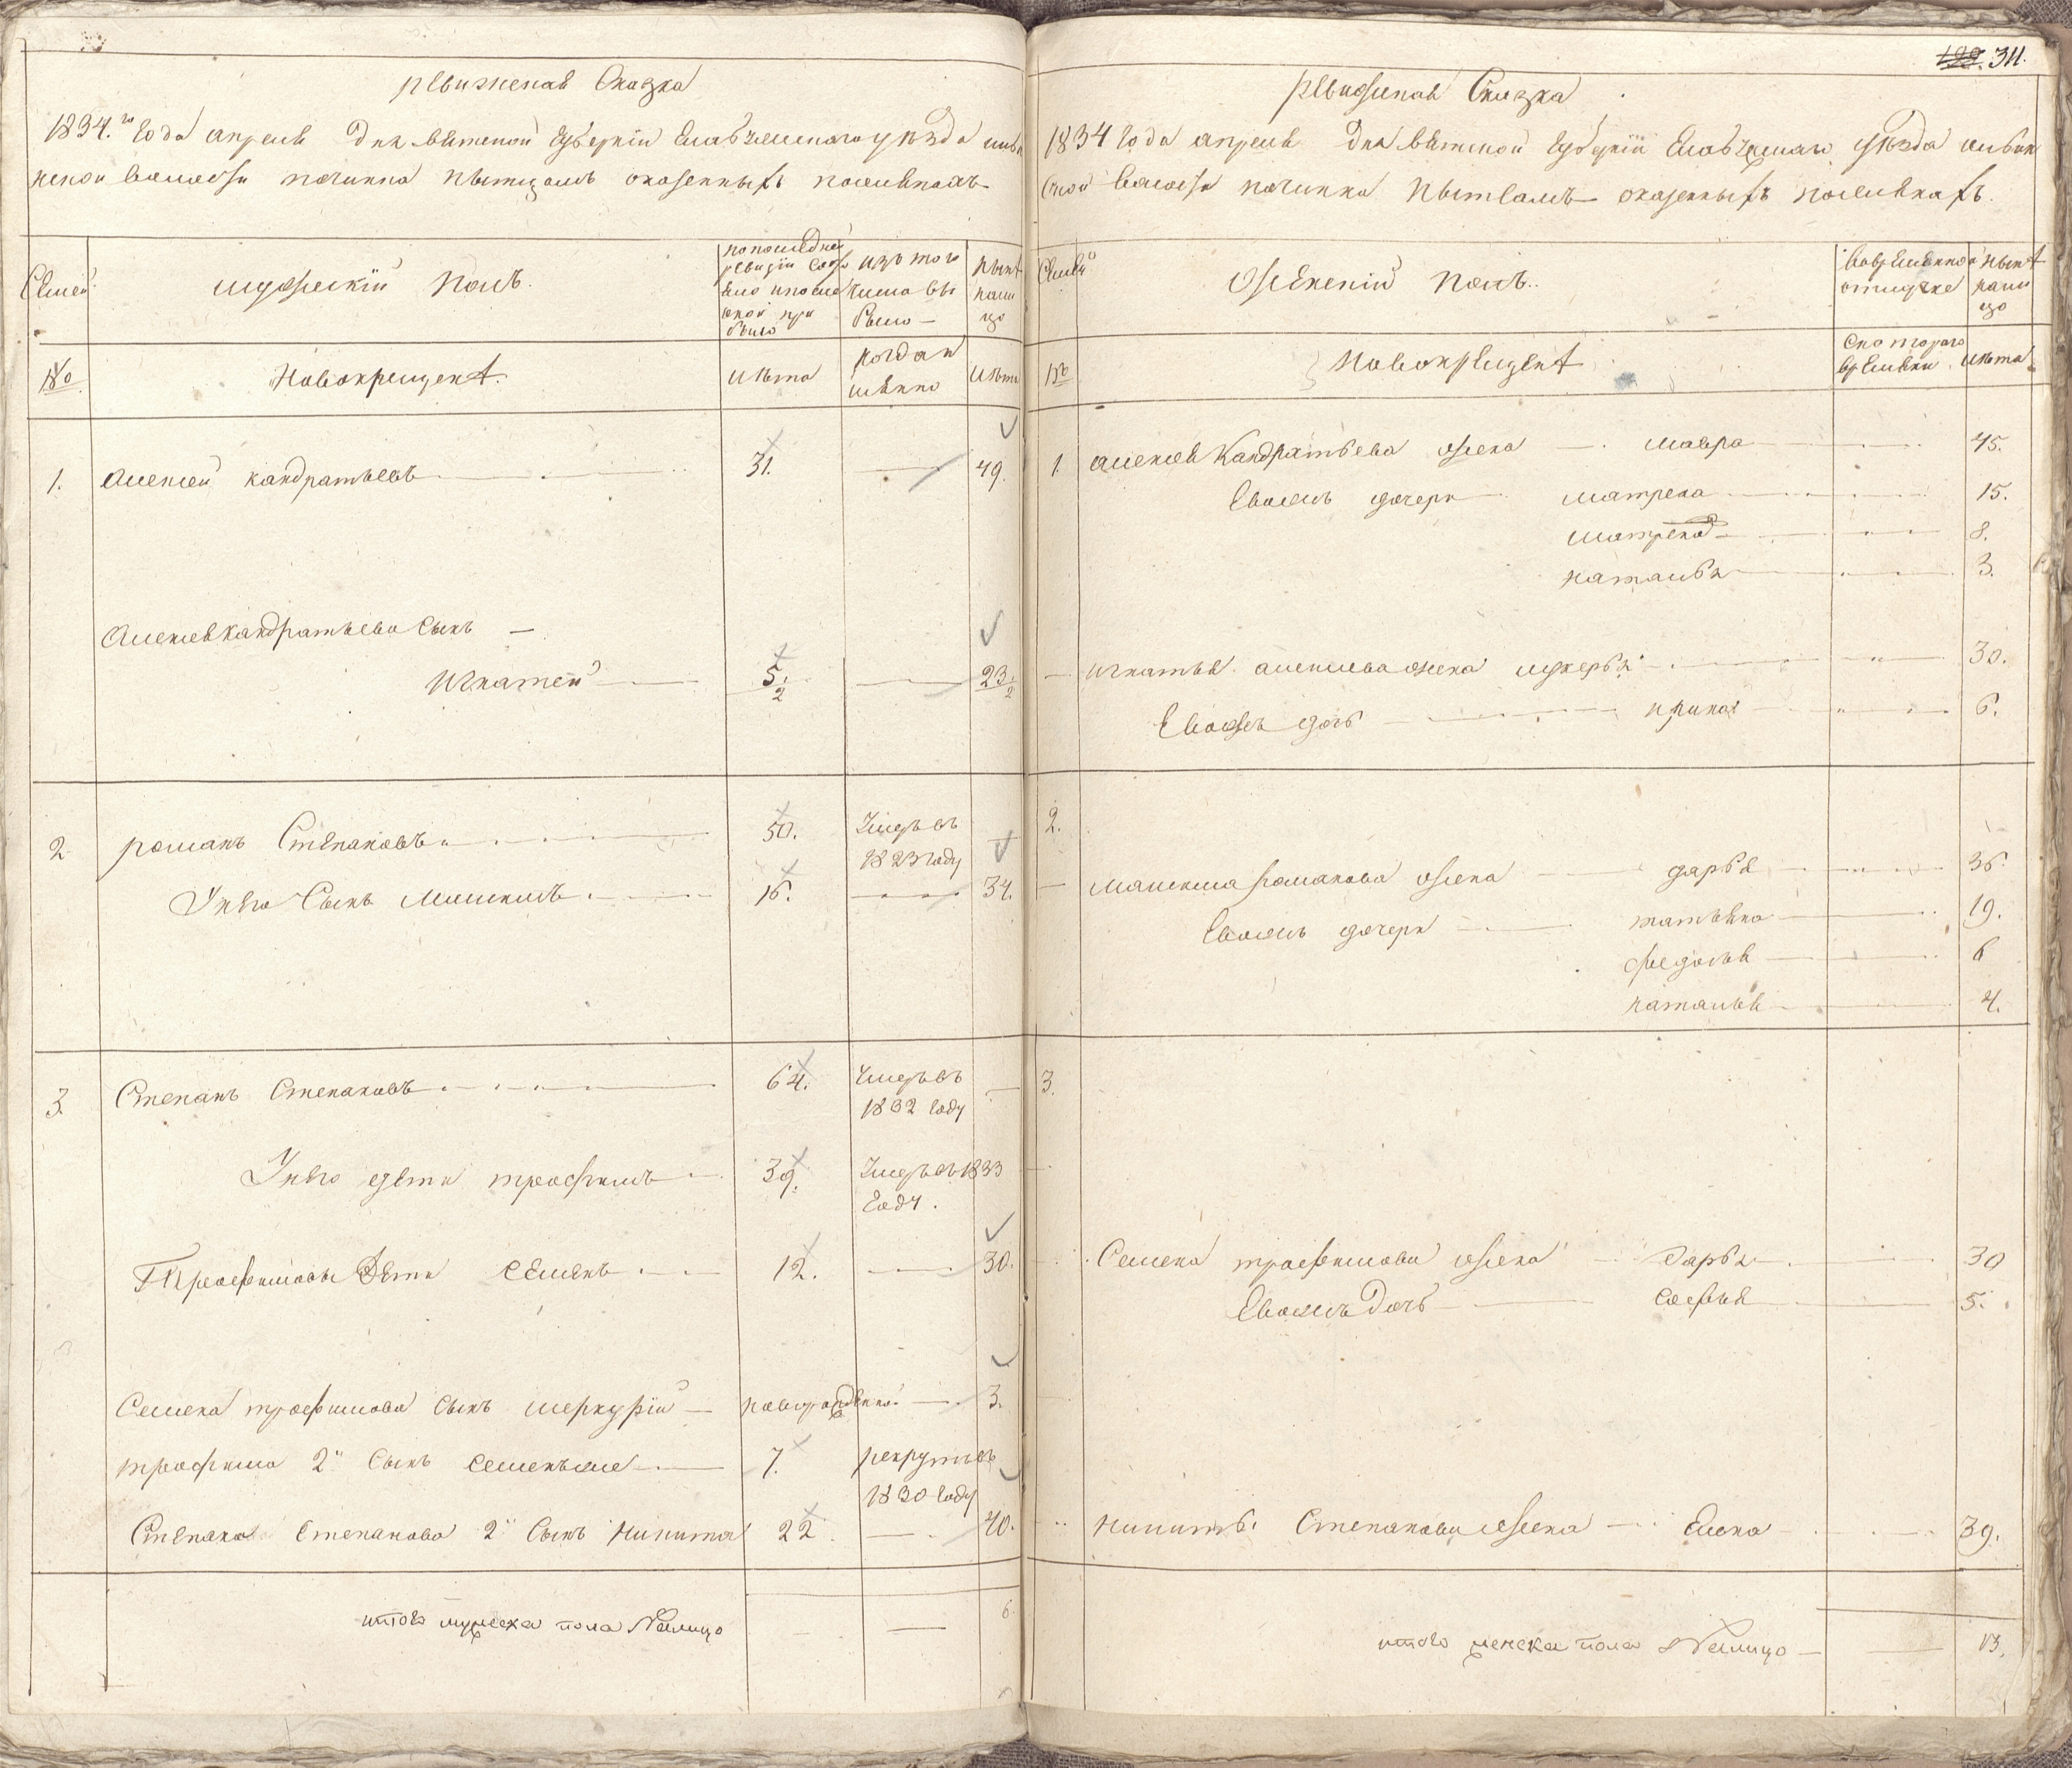 ревижская Сказка
1834.го Года апреля Дня вятской Губернiи Елабужскаго уѣзда
волости починка пытцамъ
Семей
мужескiй полъ.
по последней
ревизiи состо
яло и после
оной при
было
изъ того
числа вы
было
нынѣ
нали
цо
№
Новокрещенѣ.
лѣта
когда и
менно
лѣта
1. алексей кандратьевъ 31. — 49.
алексея кандратьева Сынъ —
игнатей 5. — 23.
2 2
2 романъ Степановъ 50. Умеръ въ —
1823 году
У него Сынъ Максимъ 16. — 34.
3. Степанъ Степановъ 64. Умеръ въ —
1832 году
У него дети трофимъ 39. Умеръ въ 1833
году.
Трофимовы Дети семенъ 12. — 30.
Семена трофимова сынъ меркурiй — новорожденной — 3.
трофима 2й сынъ семенъ же 7. рекрутъ въ
1830 году
Степана Степанова 2й Сынъ Никита 22 — 40.
итого мужеска пола Налицо — — 6.
199. 311.
ревизская Сказка
1834 Года апреля Дня вятской Губернiи Елабужскаго уѣзда
ской волости починка пытцамъ
Семей
Женскiй полъ.
во временной
отлучке
нынѣ
нали
цо
№
новокрещенѣ
с котораго
времени
лѣта
1. алексея Кандратьева жена — мавра 45.
Ево жъ дочери матрена 15.
матрена 8.
наталья 3.
— игнатья алексеева жена лукерья 30.
Ево жъ дочь ирина 6.
2.
— максима романова жена дарья 36.
Ево жъ дочери татьяна 19.
федосья 6
наталья 4.
3.
Семена трофимова жена дарья 30
Ево жъ дочь софья 5.
никиты Степанова жена — Елена 39.
итого женска пола Налицо — 13.